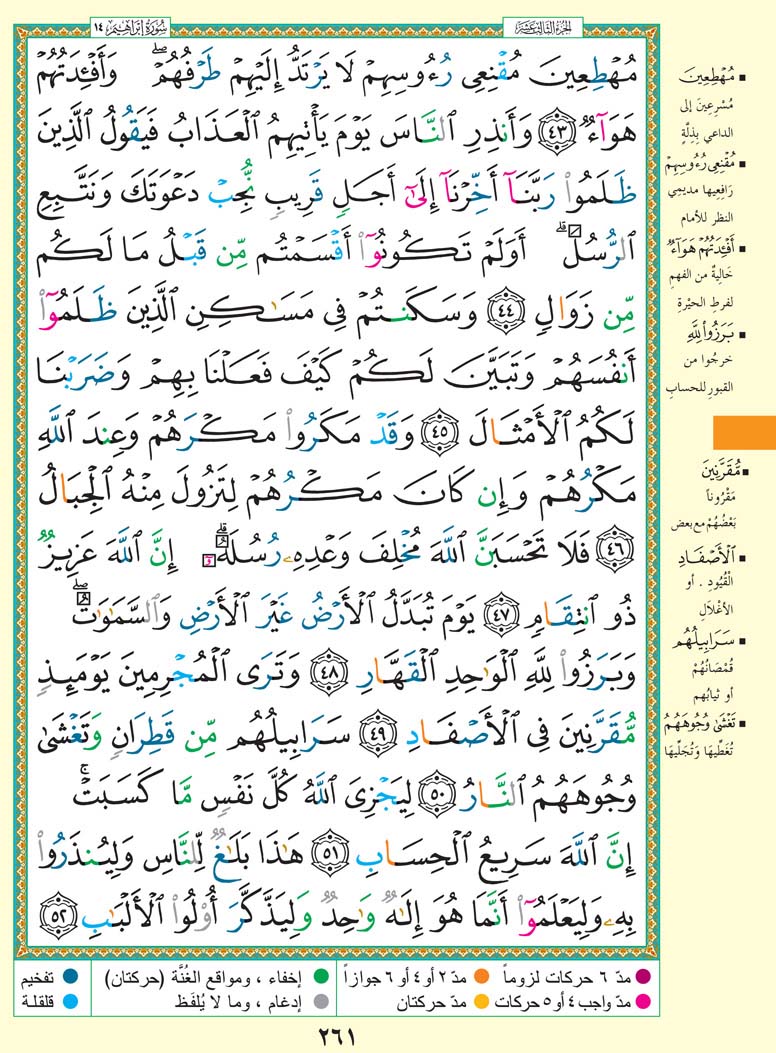 الجزء الثالث عشر
سورة إبراهيم ١٤
مُهْطِعِينَ مُقْنِعِي رُءُوسِهِمْ لَا يَرْتَدُّ إِلَيْهِمْ طَرْفُهُمْ ۖ وَأَفْـِٔدَتُهُمْ
هَوَآءٌ ٤٣ وَأَنذِرِ ٱلنَّاسَ يَوْمَ يَأْتِيهِمُ ٱلْعَذَابُ فَيَقُولُ ٱلَّذِينَ
ظَلَمُوا۟ رَبَّنَآ أَخِّرْنَآ إِلَىٰٓ أَجَلٍ قَرِيبٍ نُّجِبْ دَعْوَتَكَ وَنَتَّبِعِ
ٱلرُّسُلَ ۗ أَوَلَمْ تَكُونُوٓا۟ أَقْسَمْتُم مِّن قَبْلُ مَا لَكُم
مِّن زَوَالٍ ٤٤ وَسَكَنتُمْ فِى مَسَـٰكِنِ ٱلَّذِينَ ظَلَمُوٓا۟
أَنفُسَهُمْ وَتَبَيَّنَ لَكُمْ كَيْفَ فَعَلْنَا بِهِمْ وَضَرَبْنَا
لَكُمُ ٱلْأَمْثَالَ ٤٥ وَقَدْ مَكَرُوا۟ مَكْرَهُمْ وَعِندَ ٱللَّهِ
مَكْرُهُمْ وَإِن كَانَ مَكْرُهُمْ لِتَزُولَ مِنْهُ ٱلْجِبَالُ
٤٦ فَلَا تَحْسَبَنَّ ٱللَّهَ مُخْلِفَ وَعْدِهِۦ رُسُلَهُۥٓ ۗ إِنَّ ٱللَّهَ عَزِيزٌ
ذُو ٱنتِقَامٍ ٤٧ يَوْمَ تُبَدَّلُ ٱلْأَرْضُ غَيْرَ ٱلْأَرْضِ وَٱلسَّمَـٰوَٰتُ ۖ
وَبَرَزُوا۟ لِلَّهِ ٱلْوَٰحِدِ ٱلْقَهَّارِ ٤٨ وَتَرَى ٱلْمُجْرِمِينَ يَوْمَئِذٍ
مُّقَرَّنِينَ فِى ٱلْأَصْفَادِ ٤٩ سَرَابِيلُهُم مِّن قَطِرَانٍ وَتَغْشَىٰ
وُجُوهَهُمُ ٱلنَّارُ ٥٠ لِيَجْزِىَ ٱللَّهُ كُلَّ نَفْسٍ مَّا كَسَبَتْ ۚ
إِنَّ ٱللَّهَ سَرِيعُ ٱلْحِسَابِ ٥١ هَـٰذَا بَلَـٰغٌ لِّلنَّاسِ وَلِيُنذَرُوا۟
بِهِۦ وَلِيَعْلَمُوٓا۟ أَنَّمَا هُوَ إِلَـٰهٌ وَٰحِدٌ وَلِيَذَّكَّرَ أُو۟لُوا۟ ٱلْأَلْبَـٰبِ ٥٢
▪ مُهْطِعِينَ
مُسْرِعِينَ إلى
الداعي بِذِلَّةٍ
▪ مُقْنِعِي رُءُوسِهِمْ
رَافِعِيها مديمي
النظر للأمام
▪ أَفْـِٔدَتُهُمْ هَوَآءٌ
خَالِيَةٌ من الفهمِ
لفرطِ الحيْرةِ
▪ بَرَزُوا۟ لِلَّهِ
خرجُوا من
القبورِ للحسابِ
▪ مُّقَرَّنِينَ
مَقْرُوناً
بَعْضُهُمْ مع بعض
▪ ٱلْأَصْفَادِ
الْقُيُودِ . أو
الأغْلَالِ
▪ سَرَابِيلُهُم
قُمْصَانُهُمْ
أو ثيابُهم
▪ تَغْشَىٰ وُجُوهَهُمُ
تُغَطِّيهَا وَتُجَلِّيهَا
مدّ ٦ حركات لزوماً
مدّ ٢ أو ٤ أو ٦ جوازاً
إخفاء ، ومواقع الغُنَّة (حركتان)
تفخيم
مدّ واجب ٤ أو ٥ حركات
مدّ حركتان
إدغام ، وما لا يُلفَظ
قلقلة
٢٦١